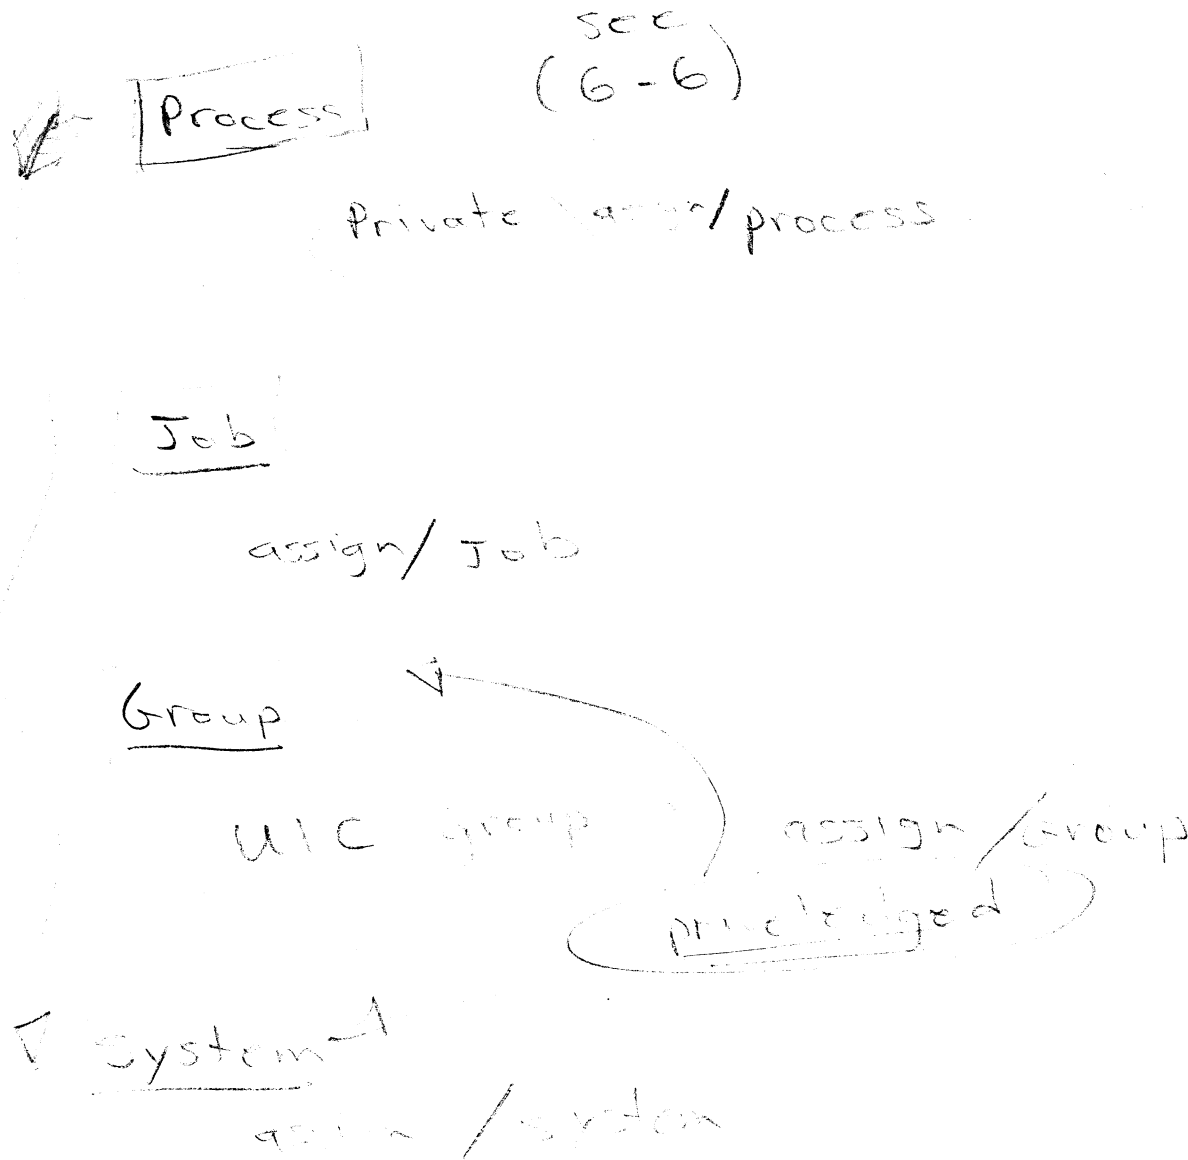 see
(6-6)
Process
Private assign/process
Job
assign/Job
Group
UIC group assign/Group
priveledged
System
assign/system